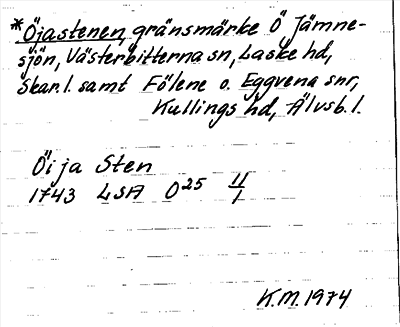 *Öjastenen, gränsmärke Ö Jämne-
sjön, Västerbitterna sn, Laske hd,
Skar. l. samt Fölene o. Eggvena snr,
Kullings hd, Älvsb. l.
Öija Sten
1743 LSA O25 11/1
K.M. 1974